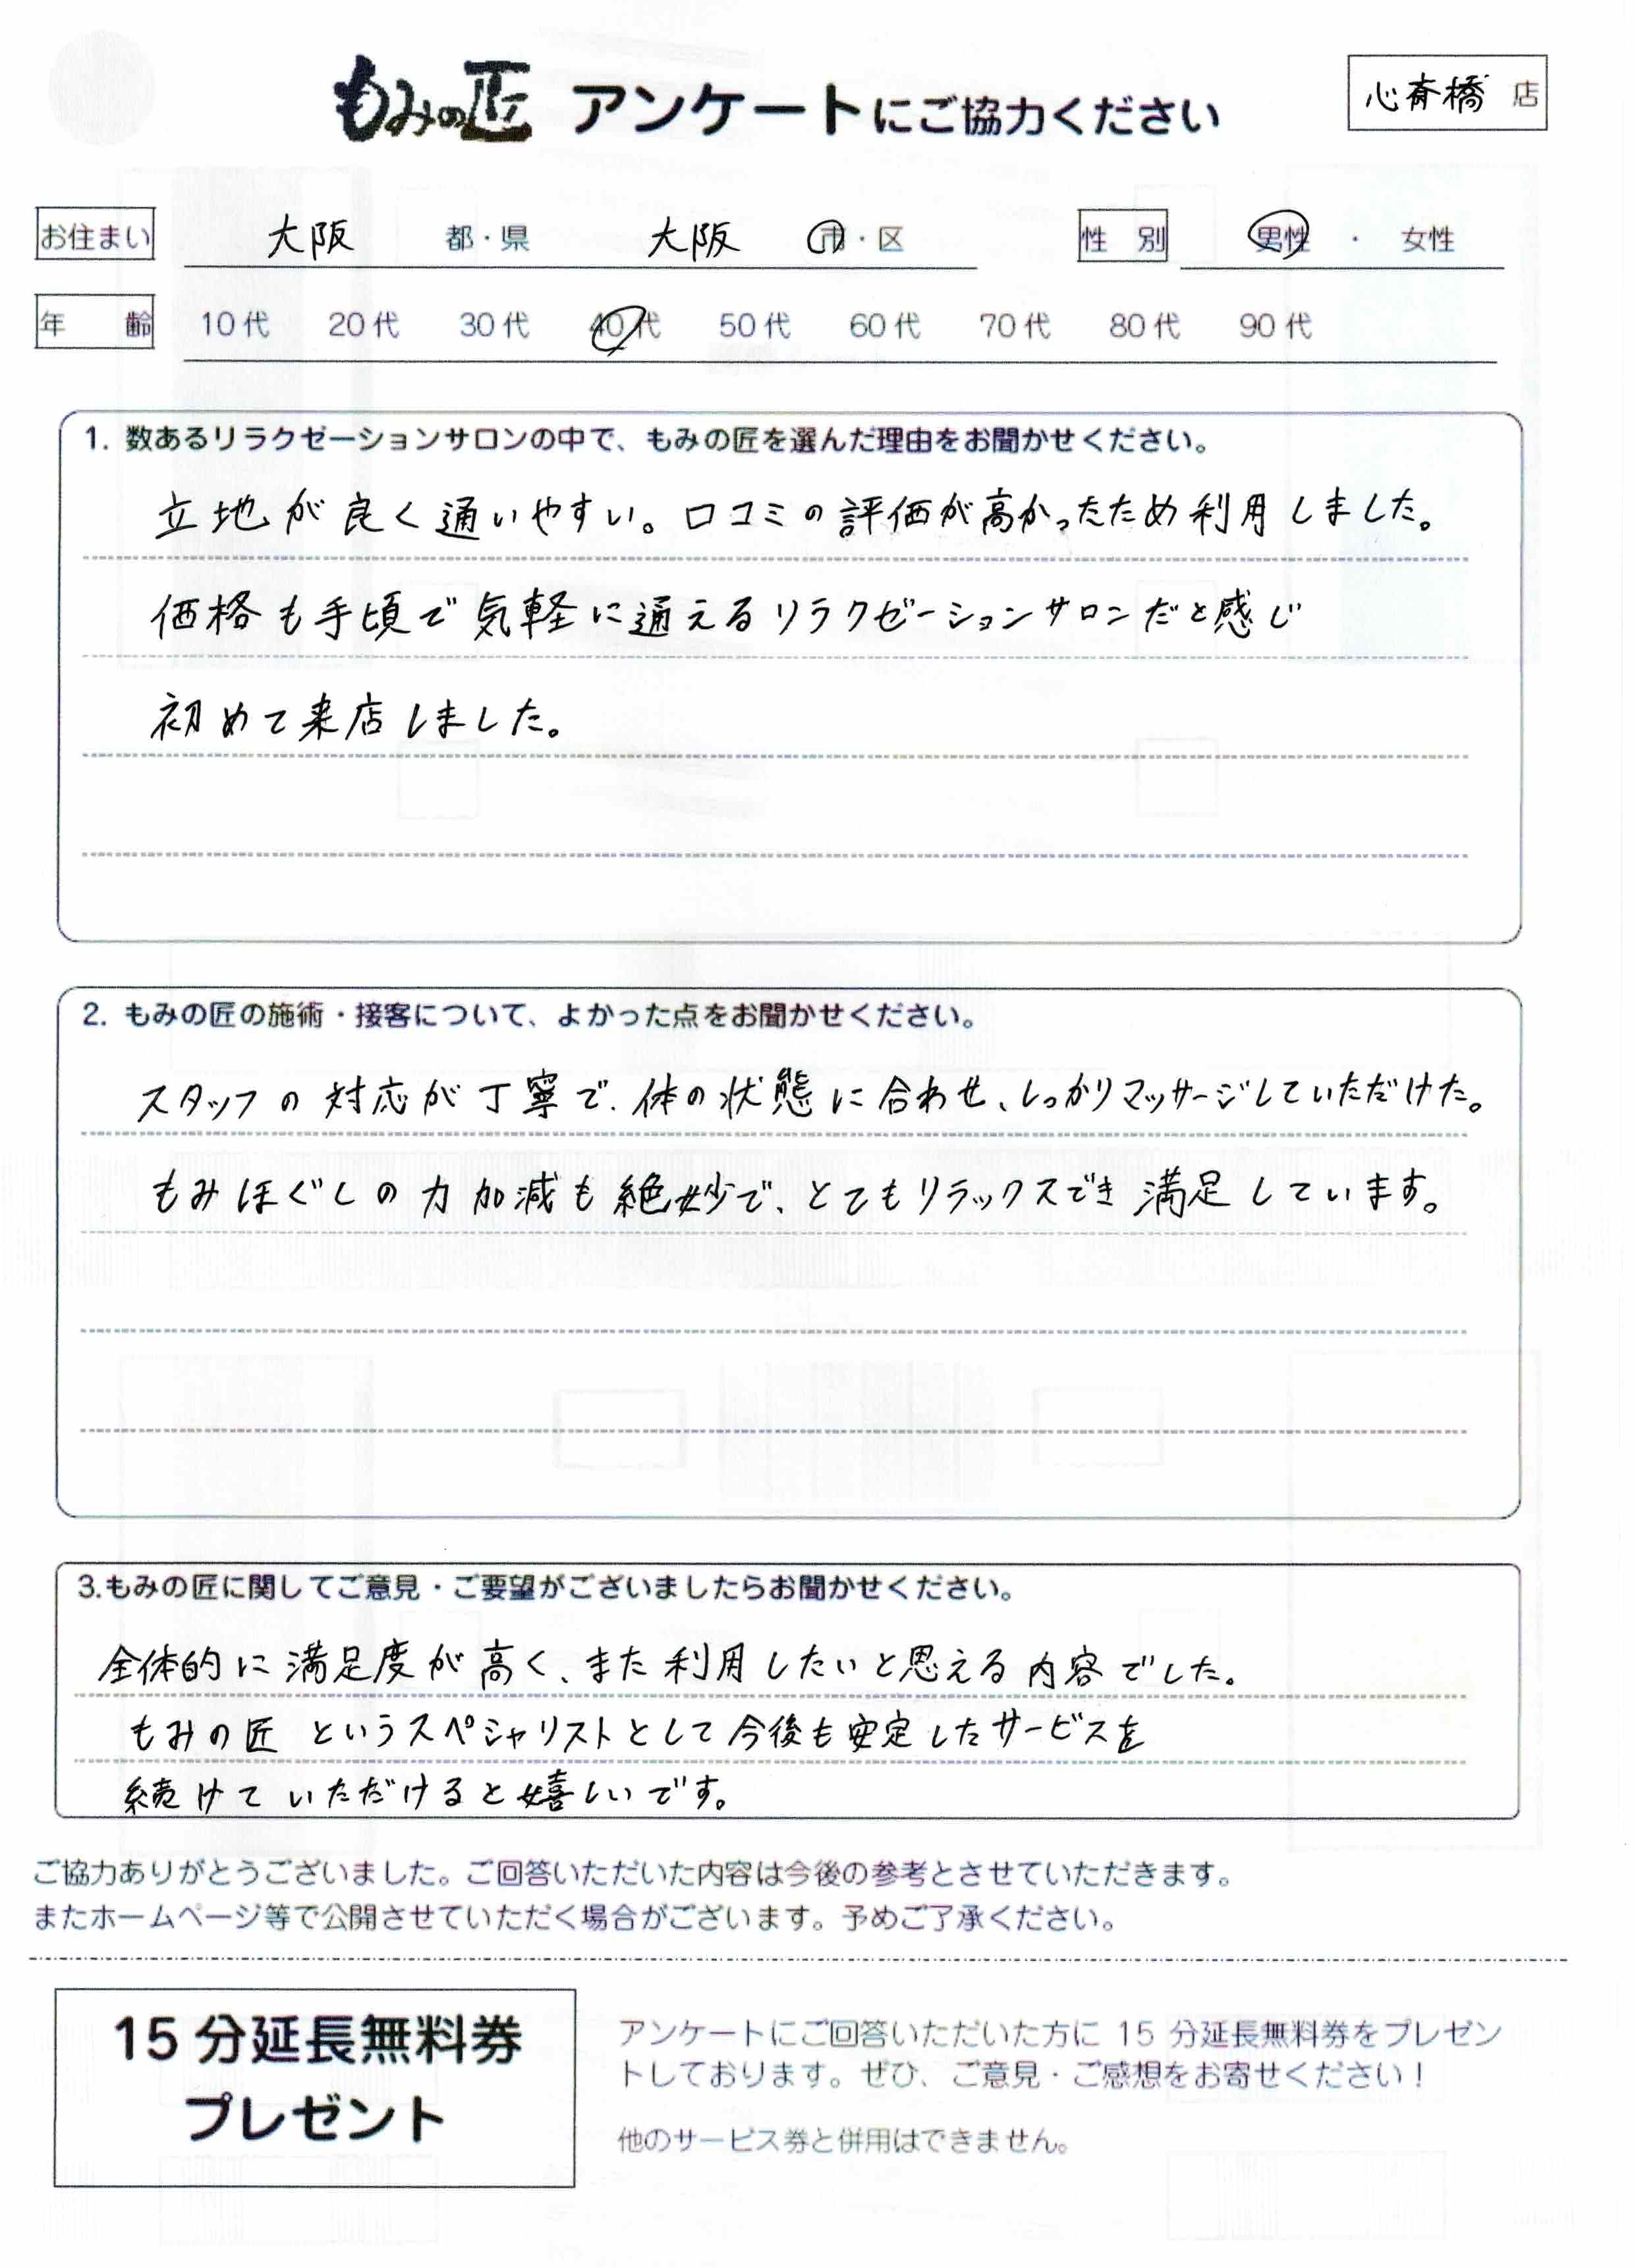 もみの匠 アンケートにご協力ください
心斉橋 店
お住まい 大阪 都・県 大阪 市・区 性 別 男性 ・ 女性
年 齢 10代 20代 30代 40代 50代 60代 70代 80代 90代
1. 数あるリラクゼーションサロンの中で、もみの匠を選んだ理由をお聞かせください。
立地が良く通いやすい。口コミの評価が高かったため利用しました。
価格も手頃で気軽に通えるリラクゼーションサロンだと感じ
初めて来店しました。
2. もみの匠の施術・接客について、よかった点をお聞かせください。
スタッフの対応が丁寧で、体の状態に合わせ、しっかりマッサージしていただけた。
もみほぐしの力加減も絶妙で、とてもリラックスでき満足しています。
3.もみの匠に関してご意見・ご要望がございましたらお聞かせください。
全体的に満足度が高く、また利用したいと思える内容でした。
もみの匠 というスペシャリストとして今後も安定したサービスを
続けていただけると嬉しいです。
ご協力ありがとうございました。ご回答いただいた内容は今後の参考とさせていただきます。
またホームページ等で公開させていただく場合がございます。予めご了承ください。
15分延長無料券
プレゼント
アンケートにご回答いただいた方に 15 分延長無料券をプレゼン
トしております。ぜひ、ご意見・ご感想をお寄せください！
他のサービス券と併用はできません。